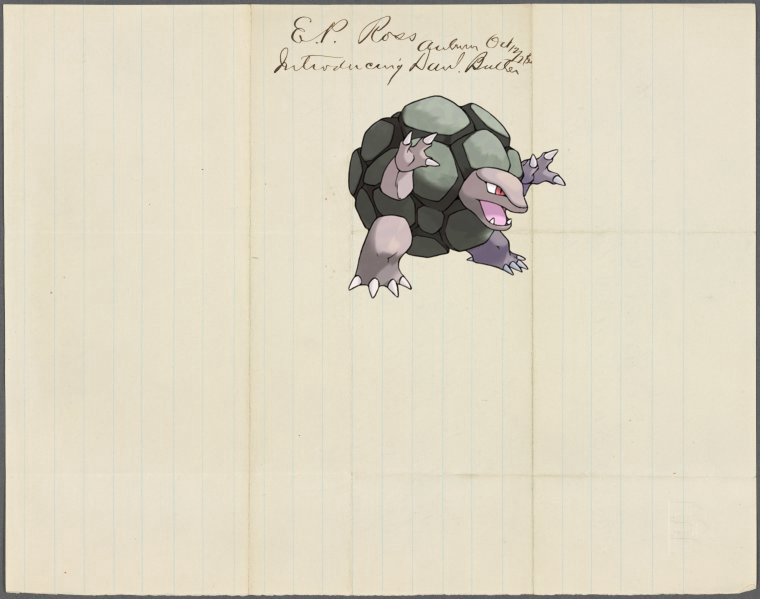 E. P. Ross
Auburn Oct
Introducing Danl. Butler